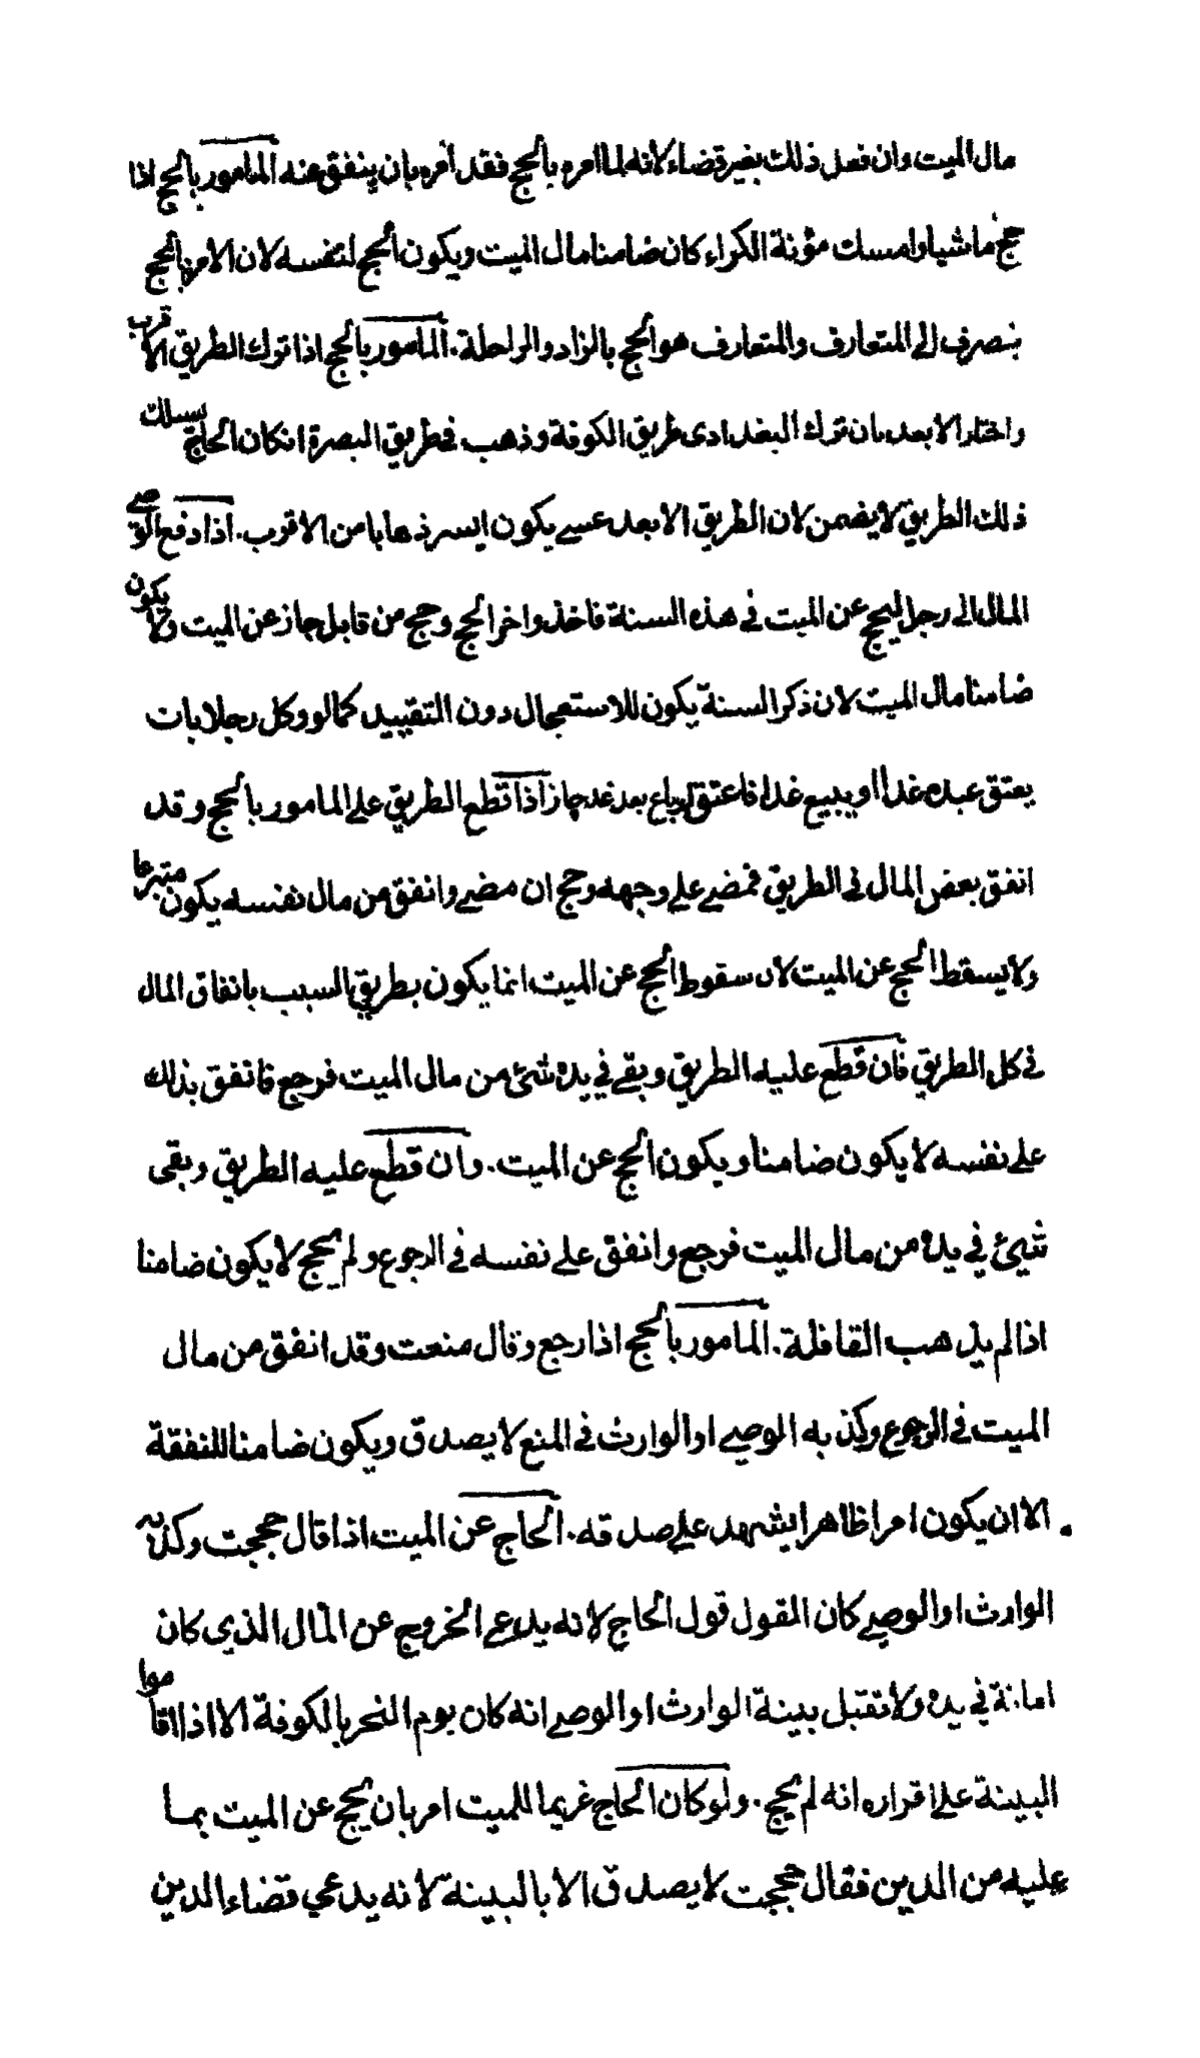 مال الميت وان فعل ذلك بغير قضاء لانه لما امره بالحج فقد امره بان ينفق عنه المامور بالحج اذا
حج ماشيا وامسك مؤنة الكراء كان ضامنا مال الميت ويكون الحج لنفسه لان الامر بالحج
ينصرف الى المتعارف والمتعارف هو الحج بالزاد والراحلة. المامور بالحج اذا ترك الطريق الاقرب
واختار الابعد بان ترك البغدادى طريق الكوفة وذهب في طريق البصرة انكان الحاج يسلك
ذلك الطريق لا يضمن لان الطريق الابعد عسى يكون ايسر ذهابا من الاقرب. اذا دفع الوصي
المال الى رجل ليحج عن الميت في هذه السنة فاخذ واخر الحج وحج من قابل جاز عن الميت ولا يكون
ضامنا مال الميت لان ذكر السنة يكون للاستعجال دون التقييد كما لو وكل رجلا بان
يعتق عبده غدا او يبيع غدا فاعتق او باع بعد غد جاز اذا قطع الطريق على المامور بالحج وقد
انفق بعض المال في الطريق فمضى على وجهه وحج ان مضى وانفق من مال نفسه يكون متبرعا
ولا يسقط الحج عن الميت لان سقوط الحج عن الميت انما يكون بطريق السبب بانفاق المال
في كل الطريق فان قطع عليه الطريق وبقي في يده شئ من مال الميت فرجع فانفق بذلك
على نفسه لا يكون ضامنا ويكون الحج عن الميت. وان قطع عليه الطريق وبقى
شيئ في يده من مال الميت فرجع وانفق على نفسه في الرجوع ولم يحج لا يكون ضامنا
اذا لم يذهب القافلة. المامور بالحج اذا رجع وقال منعت وقد انفق من مال
الميت في الرجوع وكذبه الوصي او الوارث في المنع لا يصدق ويكون ضامنا للنفقة
الا ان يكون امرا ظاهرا يشهد على صدقه. الحاج عن الميت اذا قال حججت وكذبه
الوارث او الوصي كان المقول قول الحاج لانه يدعى الخروج عن المال الذي كان
امانة في يده ولا تقبل بينة الوارث او الوصي انه كان يوم النحر بالكوفة الا اذا اقاموا
البينة على اقراره انه لم يحج. ولو كان الحاج غريما للميت امر بان يحج عن الميت بما
عليه من الدين فقال حججت لا يصدق الا بالبينة لانه يدعي قضاء الدين